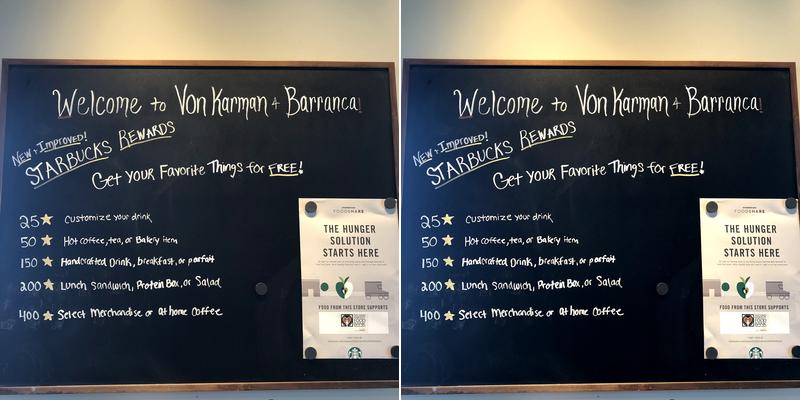 Welcome to Von Karman + Barranca!
New + Improved!
STARBUCKS REWARDS
Get YOUR Favorite Things for FREE!
25 ★ Customize your drink
50 ★ Hot coffee, tea, or Bakery item
150 ★ Handcrafted Drink, breakfast, or parfait
200 ★ Lunch Sandwich, Protein Box, or Salad
400 ★ Select Merchandise or at home Coffee
FOODSHARE
THE HUNGER
SOLUTION
STARTS HERE
FOOD FROM THIS STORE SUPPORTS
Welcome to Von Karman + Barranca!
New + Improved!
STARBUCKS REWARDS
Get YOUR Favorite Things for FREE!
25 ★ Customize your drink
50 ★ Hot coffee, tea, or Bakery item
150 ★ Handcrafted Drink, breakfast, or parfait
200 ★ Lunch Sandwich, Protein Box, or Salad
400 ★ Select Merchandise or at home Coffee
FOODSHARE
THE HUNGER
SOLUTION
STARTS HERE
FOOD FROM THIS STORE SUPPORTS